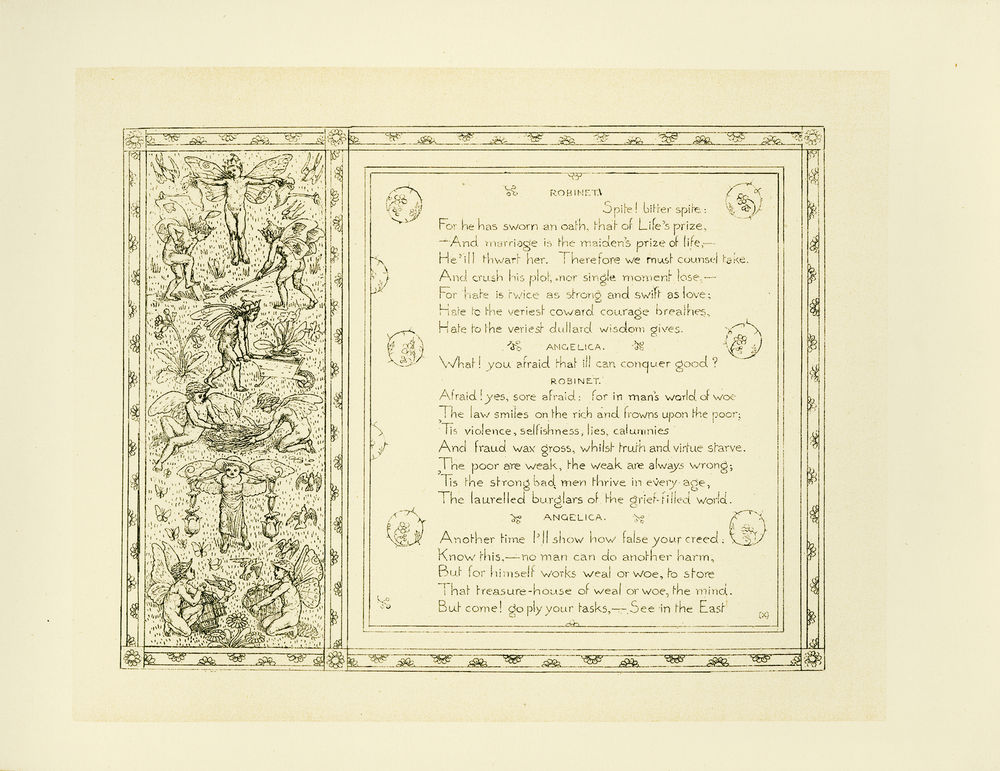 ROBINET.
Spite! bitter spite:
For he has sworn an oath, that of Life's prize,
—And marriage is the maiden's prize of life,—
He'ill thwart her. Therefore we must counsel take.
And crush his plot, nor single moment lose,—
For hate is twice as strong and swift as love;
Hate to the veriest coward courage breathes,
Hate to the veriest dullard wisdom gives.
ANGELICA.
What! you afraid that ill can conquer good?
ROBINET.
Afraid! yes, sore afraid: for in man's world of woe
The law smiles on the rich and frowns upon the poor;
'Tis violence, selfishness, lies, calumnies
And fraud wax gross, whilst truth and virtue starve.
The poor are weak, the weak are always wrong;
'Tis the strong bad men thrive in every age,
The laurelled burglars of the grief-filled world.
ANGELICA.
Another time I'll show how false your creed.
Know this,—no man can do another harm,
But for himself works weal or woe, to store
That treasure-house of weal or woe, the mind.
But come! go ply your tasks,—See in the East